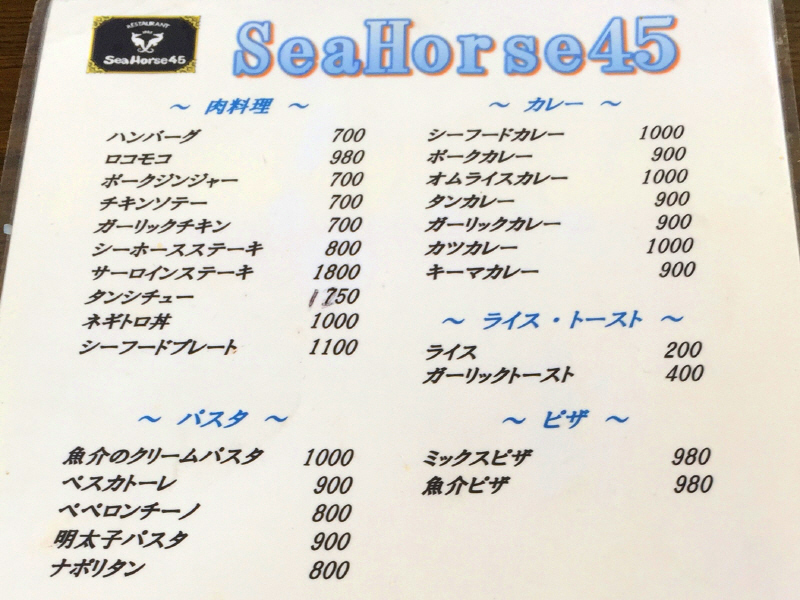 RESTAURANT
SeaHorse45
SeaHorse45
～ 肉料理 ～
ハンバーグ 700
ロコモコ 980
ポークジンジャー 700
チキンソテー 700
ガーリックチキン 700
シーホースステーキ 800
サーロインステーキ 1800
タンシチュー 1250
ネギトロ丼 1000
シーフードプレート 1100
～ パスタ ～
魚介のクリームパスタ 1000
ペスカトーレ 900
ペペロンチーノ 800
明太子パスタ 900
ナポリタン 800
～ カレー ～
シーフードカレー 1000
ポークカレー 900
オムライスカレー 1000
タンカレー 900
ガーリックカレー 900
カツカレー 1000
キーマカレー 900
～ ライス・トースト ～
ライス 200
ガーリックトースト 400
～ ピザ ～
ミックスピザ 980
魚介ピザ 980